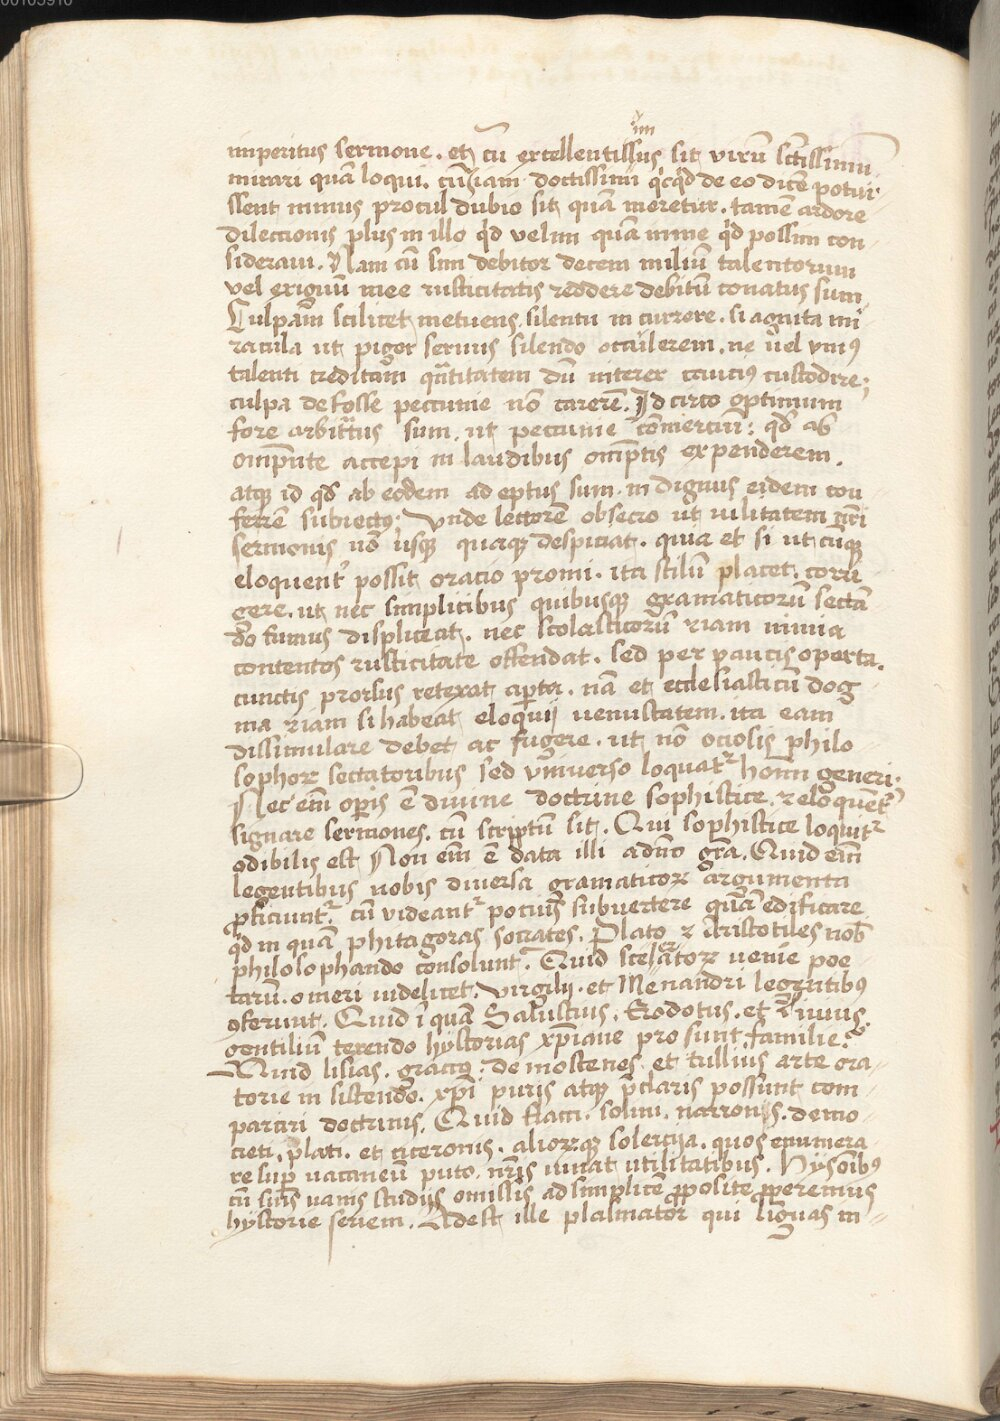 00103910
im
imperitus sermone . et cū excellentissimus sit virū sctissimū
mirari quā loqui . cū etiam doctissimi qcqd de eo dicē potui
ssent minus procul dubio sit quā meretur . tamē ardore
dileccionis plus in illo qd velim quā mīme qd possim con
sideraui . Nam cū sim debitor decem miliū talentorum
vel exiguū mee rusticitatis reddere debitū conatus sum
Culpam scilicet metuens . silentii in currere . si agnita mi
racula ut piger seruus silendo occulerem . ne uel vniꝰ
talenti creditam qñtitatem dū custodire ;
culpa defosse peccunie nō carerē . Idcirco optimum
fore arbitratus sum . ut peccunie cōmerciū : qd ab
omīpnte accepi in laudibus omīptis expenderem .
atqꝫ id qd ab eodem ad eptus sum . in dignus eidem con
ferrē subiectꝰ : Vnde lectorē obsecro ut uilitatem nri
sermonis nō usqꝫ quaqꝫ despiciat . quia et si ut cūqꝫ
eloquent possit oracio promi . ita stilū placet . corri
gere . ut nec simplicibus quibusqꝫ gramaticorū sectā
do fumus displiceat . nec scolasticorū etiam nimia
contentos rusticitate offendat . sed per paucis operta
cunctis prorsus retexat apta . nā et ecclesiasticū dog
ma etiam si habeat eloquij uenustatem . ita eam
dissimulare debet ac fugere . ut nō ociosis philo
sophoꝝ sectatoribus sed vniuerso loquatr homin generi .
Nec eīm opis ē diuine doctrine sophistice . et eloquēt
signare sermones . cū scriptū sit . Qui sophistice loquitr
odibilis est Non eīm ē data illi adno gra . Quid eīm
legentibus nobis diuersa gramaticoꝝ argumenta
pficiunt . cū videantr pocius subuertere quā edificare
qd in quā phitagoras socrates . Plato et Aristotiles nob
philosophando consolunt . Quid sceleratoꝝ uenie poe
tarū . omeri uidelicet . Virgilij . et Menandri legentibꝰ
ꝯferunt . Quid ī quā Salustius . Erodotus . et liuius
gentiliū texendo hystorias xpiane pro sunt familie .
Quid lisias . gracchꝰ : demostenes . et tullius arte ora
torie in sistendo . xpi puris atqꝫ pclaris possunt com
parari doctrinis . Quid flacci . solini . . demo
criti . plati . et ciceronis . alioꝝqꝫ solercija . quos enumera
re sup uacaneū puto . nris iuuat utilitatibus . Hys oībꝰ
cū suis uanis studijs omissis ad simplicē pposite pperemus
hystorie seriem . Adest ille plasmator qui liguas in